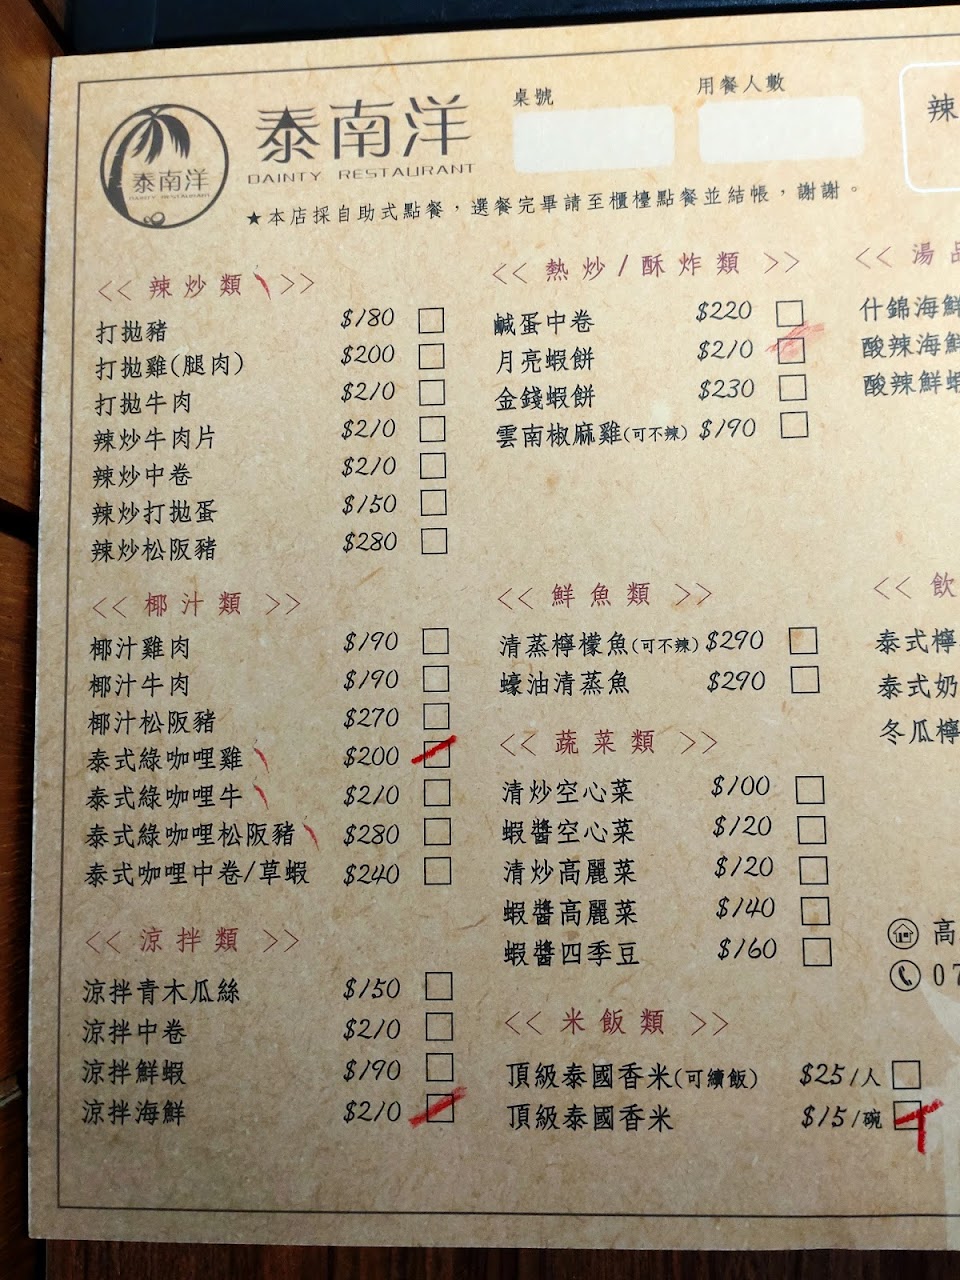 泰南洋
DAINTY RESTAURANT
泰南洋
DAINTY RESTAURANT
桌號
用餐人數
辣
★本店採自助式點餐，選餐完畢請至櫃檯點餐並結帳，謝謝。
<< 辣炒類 >>
打拋豬 $180
打拋雞(腿肉) $200
打拋牛肉 $210
辣炒牛肉片 $210
辣炒中卷 $210
辣炒打拋蛋 $150
辣炒松阪豬 $280
<< 椰汁類 >>
椰汁雞肉 $190
椰汁牛肉 $190
椰汁松阪豬 $270
泰式綠咖哩雞 $200
泰式綠咖哩牛 $210
泰式綠咖哩松阪豬 $280
泰式咖哩中卷/草蝦 $240
<< 涼拌類 >>
涼拌青木瓜絲 $150
涼拌中卷 $210
涼拌鮮蝦 $190
涼拌海鮮 $210
<< 熱炒/酥炸類 >>
鹹蛋中卷 $220
月亮蝦餅 $210
金錢蝦餅 $230
雲南椒麻雞(可不辣) $190
<< 鮮魚類 >>
清蒸檸檬魚(可不辣) $290
蠔油清蒸魚 $290
<< 蔬菜類 >>
清炒空心菜 $100
蝦醬空心菜 $120
清炒高麗菜 $120
蝦醬高麗菜 $140
蝦醬四季豆 $160
<< 米飯類 >>
頂級泰國香米(可續飯) $25/人
頂級泰國香米 $15/碗
<< 湯品
什錦海鮮
酸辣海鮮
酸辣鮮蝦
<< 飲
泰式檸
泰式奶
冬瓜檸
高
07